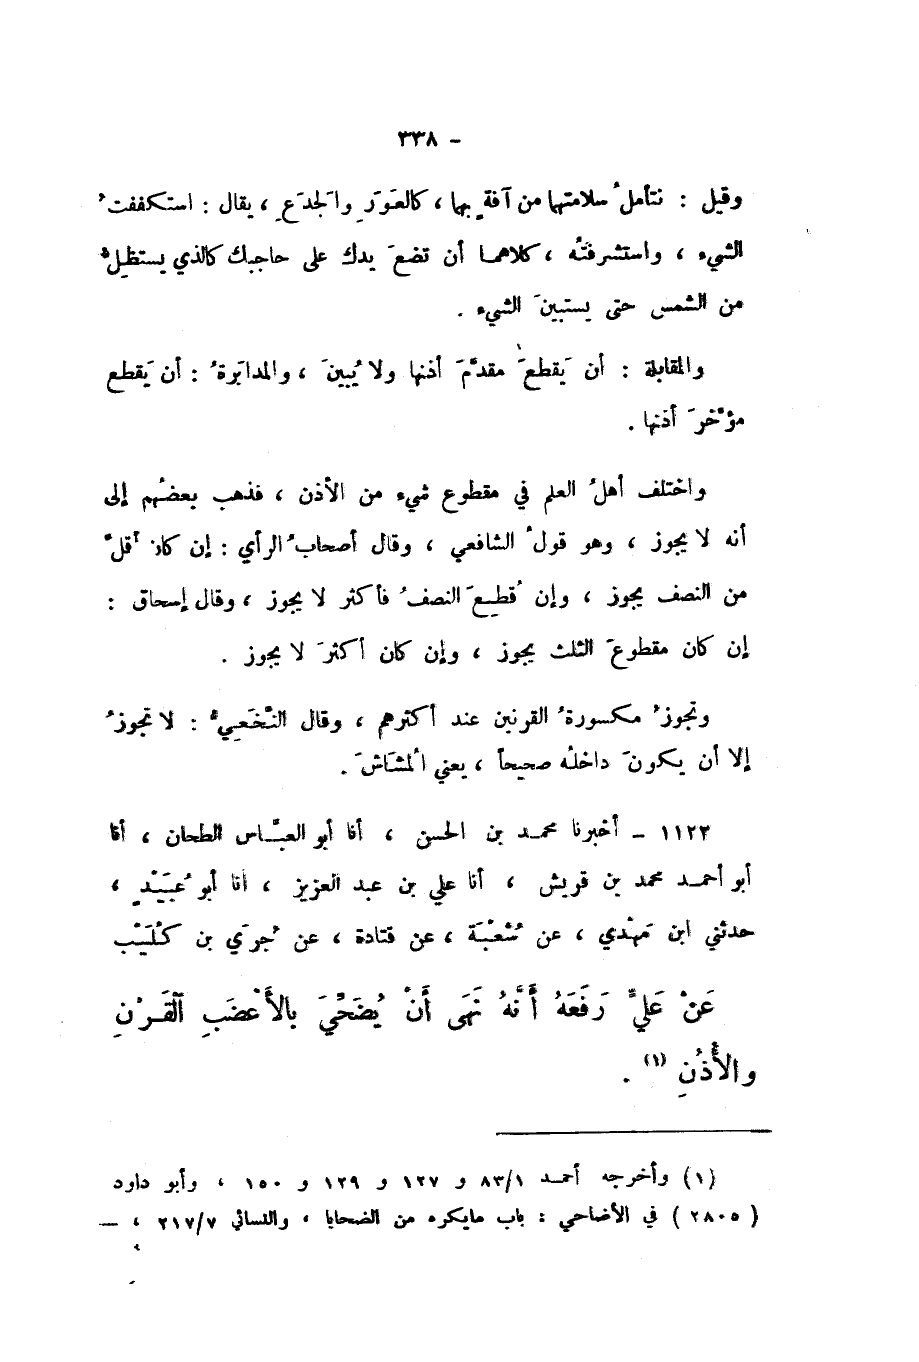 ـ ٣٣٨
وقيل : نتأملُ سلامتها من آفةٍ بها ، كالعَوَرِ والجَدَعِ ، يقال : استكففتُ
الشيء ، واستشرفتُه ، كلاهما أن تضعَ يدك على حاجبك كالذي يستظِلُّ
من الشمس حتى يستبينَ الشيء .
والمقابلة : أن يَقطعَ مقدَّمَ أذنها ولا يُبينَ ، والمدابَرةُ : أن يَقطع
مؤخَّرَ أذنها .
واختلف أهلُ العلم في مقطوع شيء من الأذن ، فذهب بعضُهم إلى
أنه لا يجوز ، وهو قولُ الشافعي ، وقال أصحابُ الرأي : إن كان أقلَّ
من النصف يجوز ، وإن قُطِعَ النصفُ فأكثر لا يجوز ، وقال إسحاق :
إن كان مقطوعَ الثلث يجوز ، وإن كان أكثرَ لا يجوز .
وتجوزُ مكسورةُ القرنين عند أكثرهم ، وقال النَّخَعِيُّ : لا تجوزُ
إلا أن يكونَ داخلُه صحيحاً ، يعني المُشَاشَ .
١١٢٣ ـ أخبرنا محمد بن الحسن ، أنا أبو العبَّاس الطحان ، أنا
أبو أحمد محمد بن قريش ، أنا علي بن عبد العزيز ، أنا أبو عُبَيْدٍ ،
حدثني ابن مَهْدي ، عن شُعْبَة ، عن قتادة ، عن جُرَي بن كُلَيْب
عَنْ عَلِيٍّ رَفَعَهُ أَنَّهُ نَهَى أَنْ يُضَحَّيَ بِالأَعْضَبِ الْقَرْنِ
والأُذُنِ (١) .
(١) وأخرجه أحمد ٨٣/١ و ١٢٧ و ١٢٩ و ١٥٠ ، وأبو داود
( ٢٨٠٥ ) في الأضاحي : باب مايكره من الضحايا ، والنسائي ٢١٧/٧ ، ـ